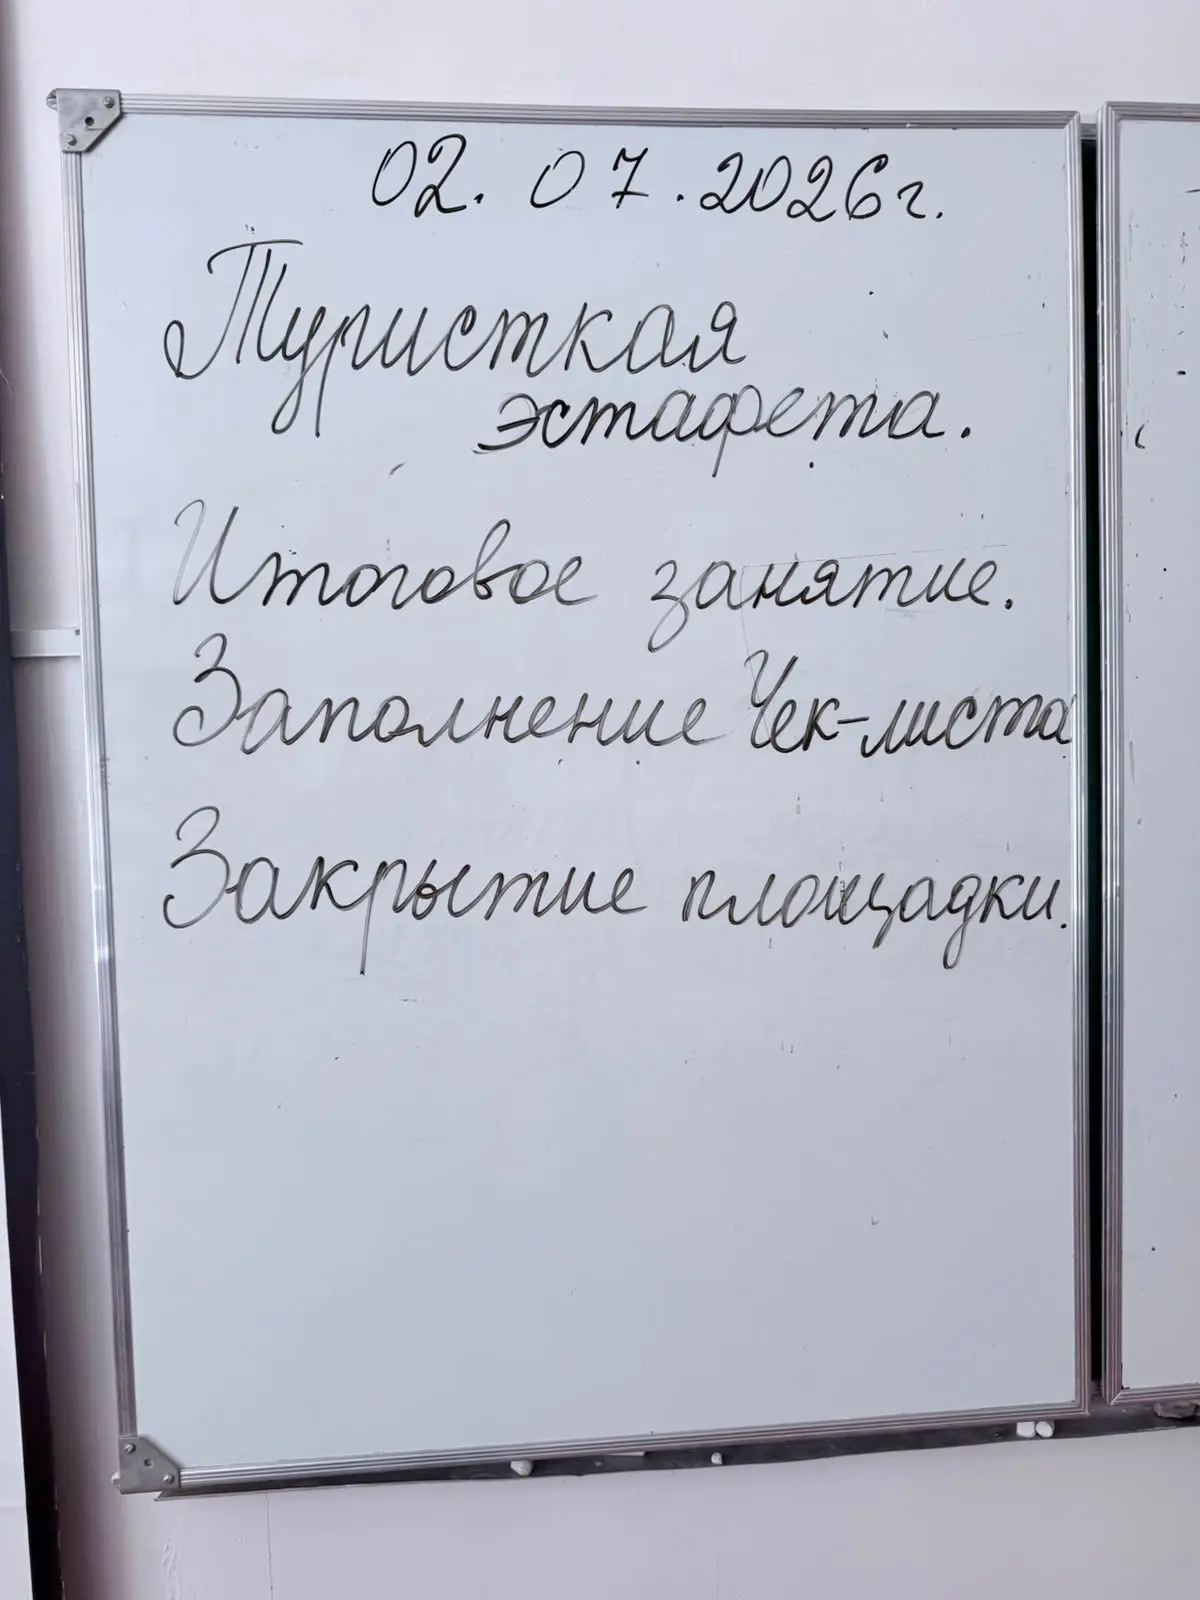 02.07.2026г.
Туристкая
эстафета.
Итоговое занятие.
Заполнение Чек-листа
Закрытие площадки.